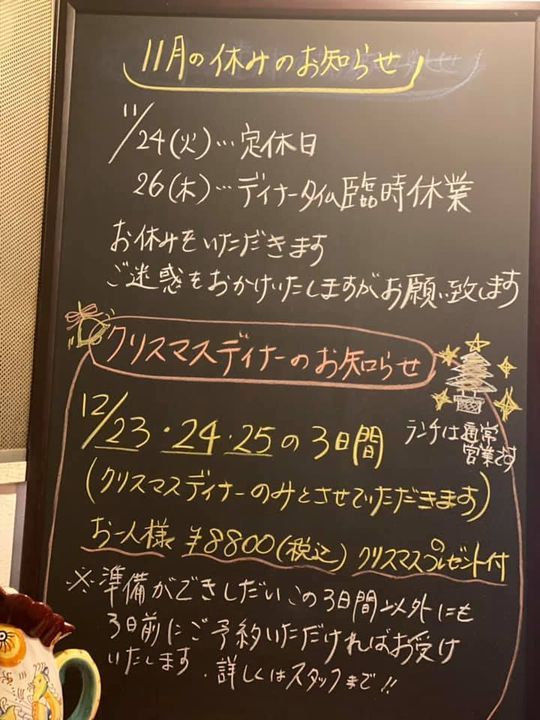 11月の休みのお知らせ
11/24(火)…定休日
26(木)…ディナータイム臨時休業
お休みをいただきます
ご迷惑をおかけいたしますがお願い致します
クリスマスディナーのお知らせ
12/23・24・25の3日間
ランチは通常
営業です
(クリスマスディナーのみとさせていただきます)
お一人様 ¥8800(税込) クリスマスプレゼント付
※準備ができしだいこの3日間以外にも
3日前にご予約いただければお受け
いたします.詳しくはスタッフまで!!